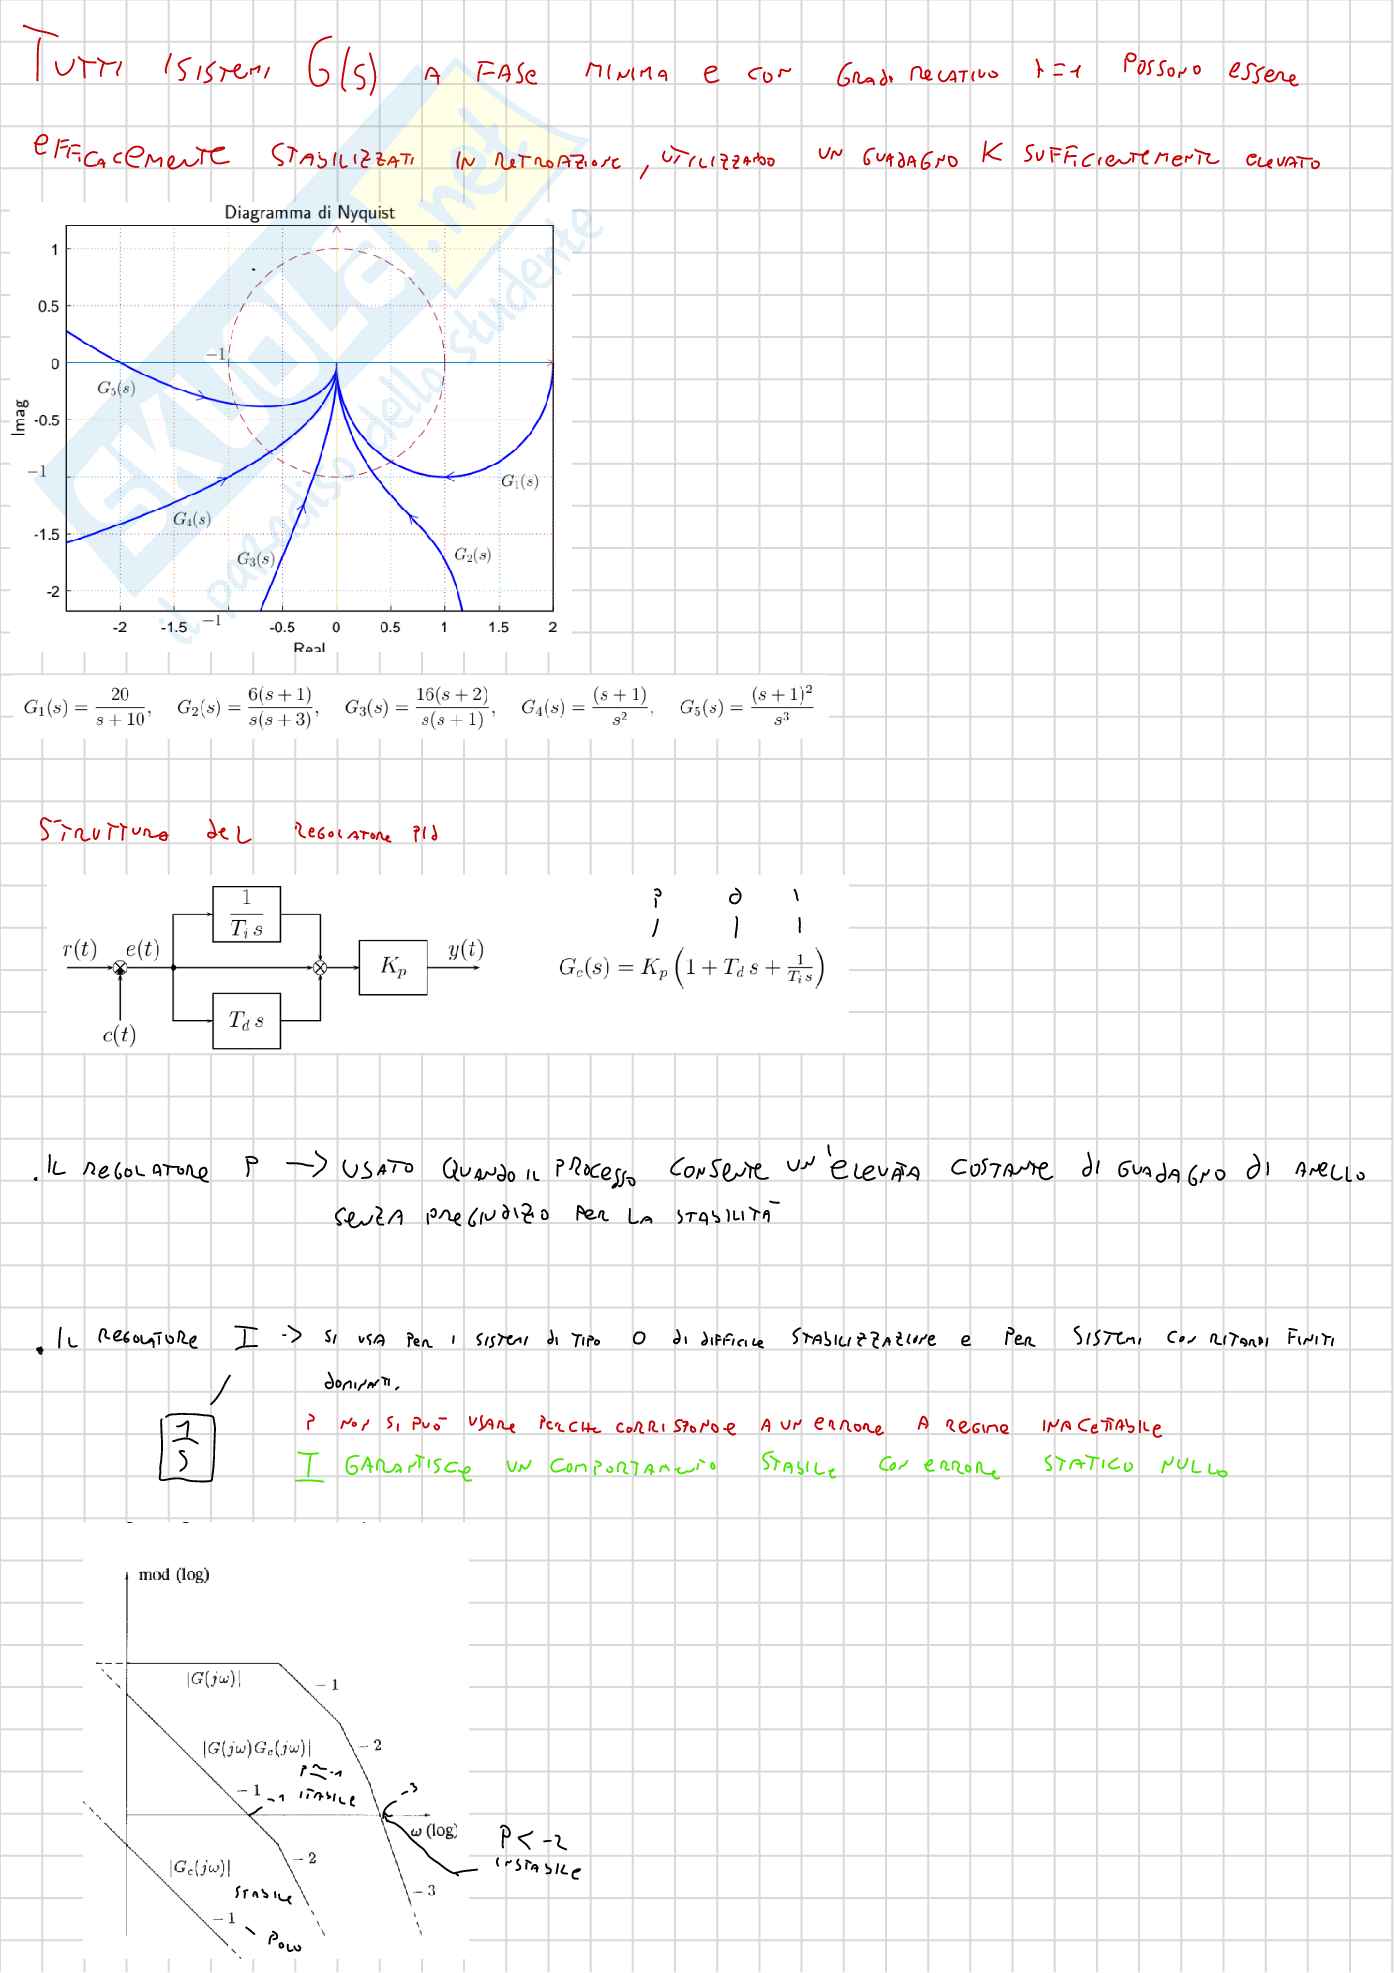 TUTTI I SISTEMI G(S) A FASE MINIMA E CON GRADI RELATIVO r=1 POSSONO ESSERE
EFFICACEMENTE STABILIZZATI IN RETROAZIONE, UTILIZZANDO UN GUADAGNO K SUFFICIENTEMENTE ELEVATO
Diagramma di Nyquist
1
0.5
0
-0.5
-1
-1.5
-2
Imag
−1
−1
−1
G₅(s)
G₄(s)
G₃(s)
G₂(s)
G₁(s)
-2 -1.5 -0.5 0 0.5 1 1.5 2
Real
SKUOLA.net
il paradiso dello studente
G₁(s) = 20/(s + 10), G₂(s) = 6(s + 1)/(s(s + 3)), G₃(s) = 16(s + 2)/(s(s + 1)), G₄(s) = (s + 1)/s², G₅(s) = (s + 1)²/s³
STRUTTURA DEL REGOLATORE PID
r(t) e(t) 1/(Tᵢ s) K_p y(t)
T_d s
c(t)
P D I
G_c(s) = K_p (1 + T_d s + 1/(Tᵢ s))
. IL REGOLATORE P -> USATO QUANDO IL PROCESSO CONSENTE UN'ELEVATA COSTANTE DI GUADAGNO DI ANELLO
SENZA PREGIUDIZIO PER LA STABILITÀ
. IL REGOLATORE I -> SI USA PER I SISTEMI DI TIPO 0 DI DIFFICILE STABILIZZAZIONE E PER SISTEMI CON RITARDI FINITI
DOMINANTI.
1/S
P NON SI PUÒ USARE PERCHE CORRISPONDE A UN ERRORE A REGIME INACETTABILE
I GARANTISCE UN COMPORTAMENTO STABILE CON ERRORE STATICO NULLO
mod (log)
|G(jω)|
− 1
− 2
|G(jω)G_c(jω)|
P ≃ -1
STABILE
− 1
-1
-3
ω (log)
P < -2
INSTABILE
− 2
|G_c(jω)|
STABILE
− 3
− 1
POLO